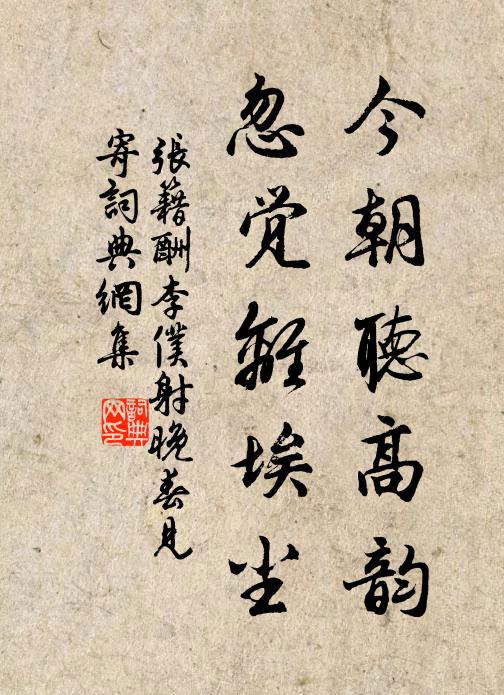 今朝聽高韵
忽觉離埃尘
張籍酬李僕射晚春見
寄詞典網集
詞典网印